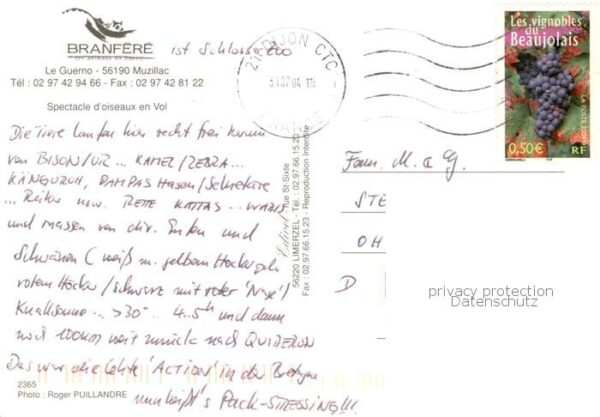 BRANFÉRÉ
ist Schloss/Zoo
Le Guerno - 56190 Muzillac
Tél : 02 97 42 94 66 - Fax : 02 97 42 81 22
Spectacle d'oiseaux en Vol
Die Tiere laufen hier recht frei herum
von BISON/UR ... KAMEL/ZEBRA ...
KÄNGURUH, PAMPAS Hasen/Sekretäre
... usw. ROTE KATTAS ... WARIS
und massen von div. Enten und
Schwänen (weiß m. gelbem Höcker
rotem Höcker/schwarz mit roter 'Nase')
Knallsonne ... >30° ... 4..5h und dann
noch 100km weit zurück nach QUIBERON
Das war die letzte 'ACTION' in der Bretagne
nun heißt's Pack-STRESSING!!!
2365
Photo : Roger PUILLANDRE
rue St-Sixte
56220 LIMERZEL - Tél. : 02.97.66.15.20
Fax : 02.97.66.15.23 - Reproduction Interdite
21 DIJON CTC
Les vignobles
du
Beaujolais
0,50€
RF
LA POSTE
Fam. M. & G.
STE
OH
D
privacy protection
Datenschutz